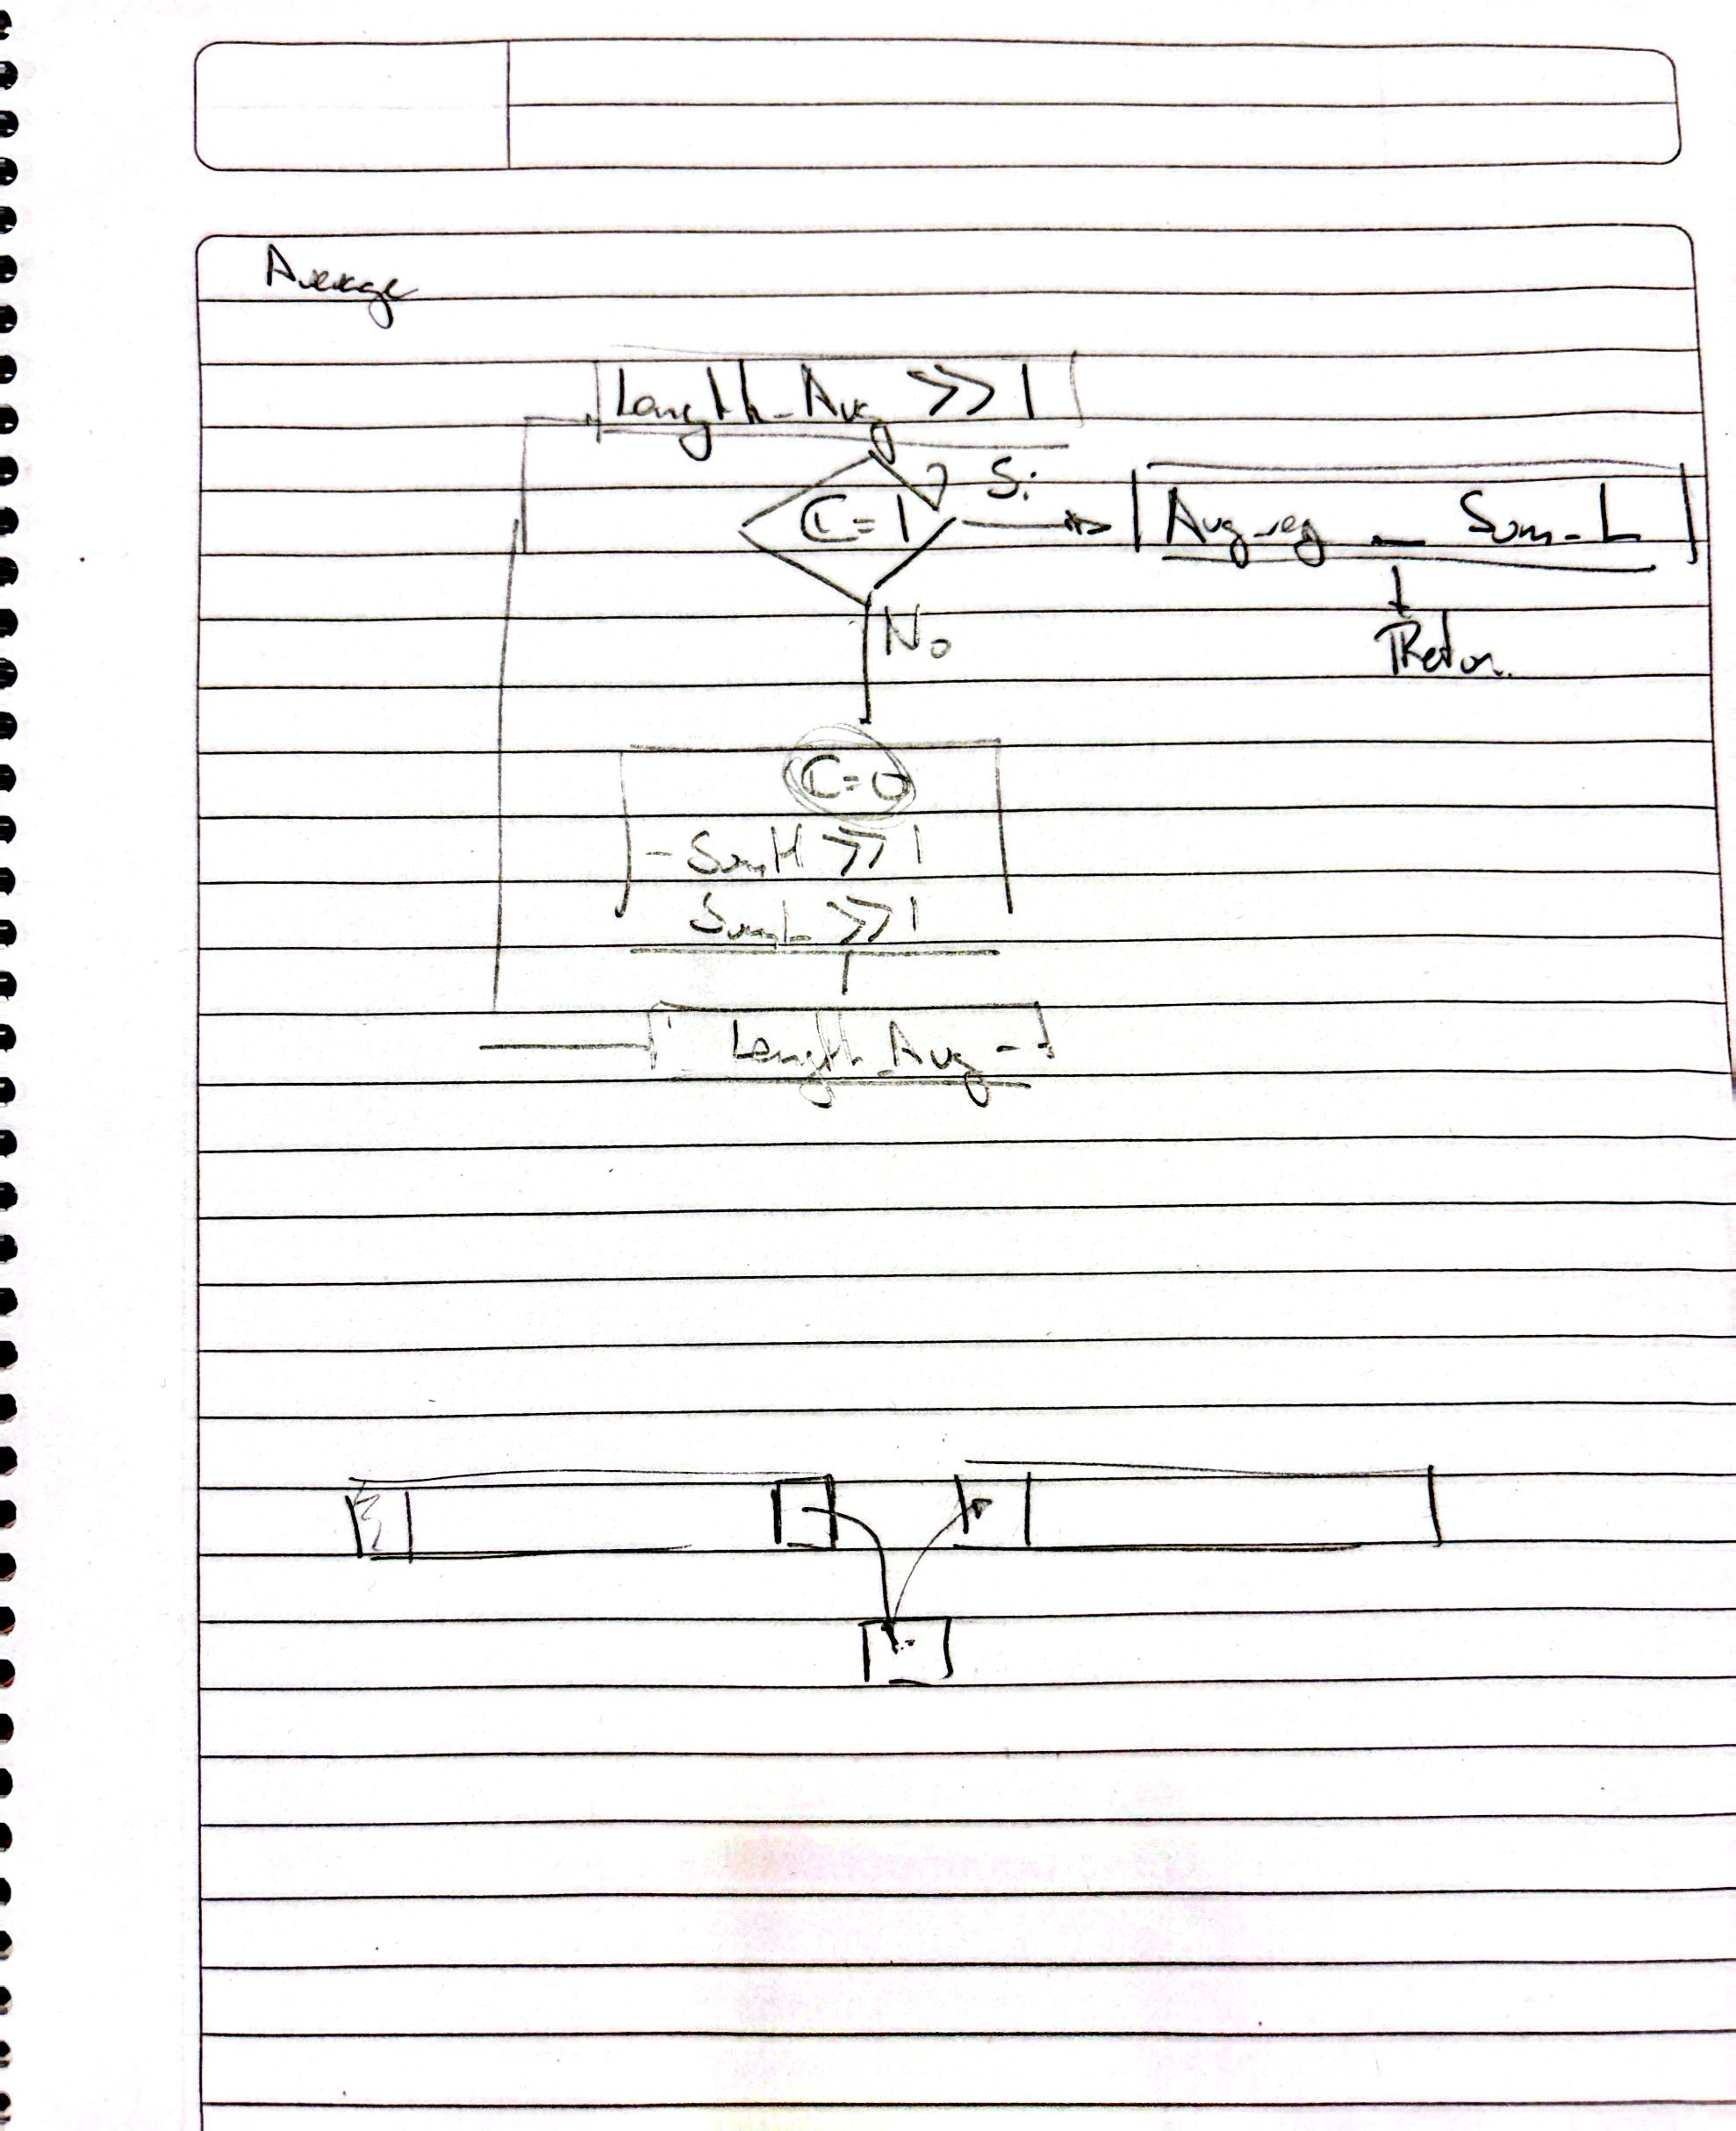 Average
Length_Avg >> 1
C=1
Si
Avg_reg _ Sum_L
No
C=0
- SumH >> 1
SumL >> 1
Length_Avg -